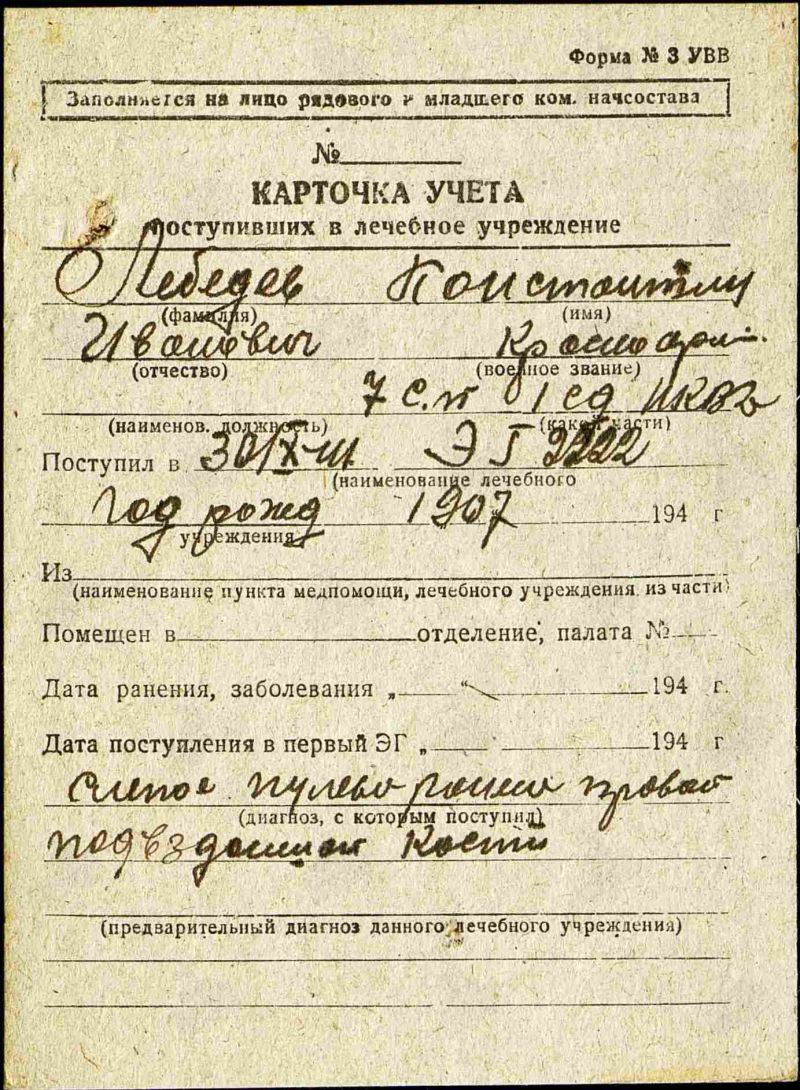 Форма № 3 УВВ
Заполняется на лицо рядового и младшего ком. начсостава
№
КАРТОЧКА УЧЕТА
поступивших в лечебное учреждение
Лебедев Константин
(фамилия) (имя)
Иванович Красноарм.
(отчество) (военное звание)
7 с.п 1 сд НКВД
(наименов. должность) (какой части)
Поступил в 30/X-41 ЭГ 2222
(наименование лечебного
год рожд 1907 194 г
учреждения
Из
(наименование пункта медпомощи, лечебного учреждения. из части)
Помещен в отделение, палата №
Дата ранения, заболевания „ “ 194 г.
Дата поступления в первый ЭГ „ 194 г
Слепое пулево ранение правой
(диагноз, с которым поступил)
подвздошной кости
(предварительный диагноз данного лечебного учреждения)